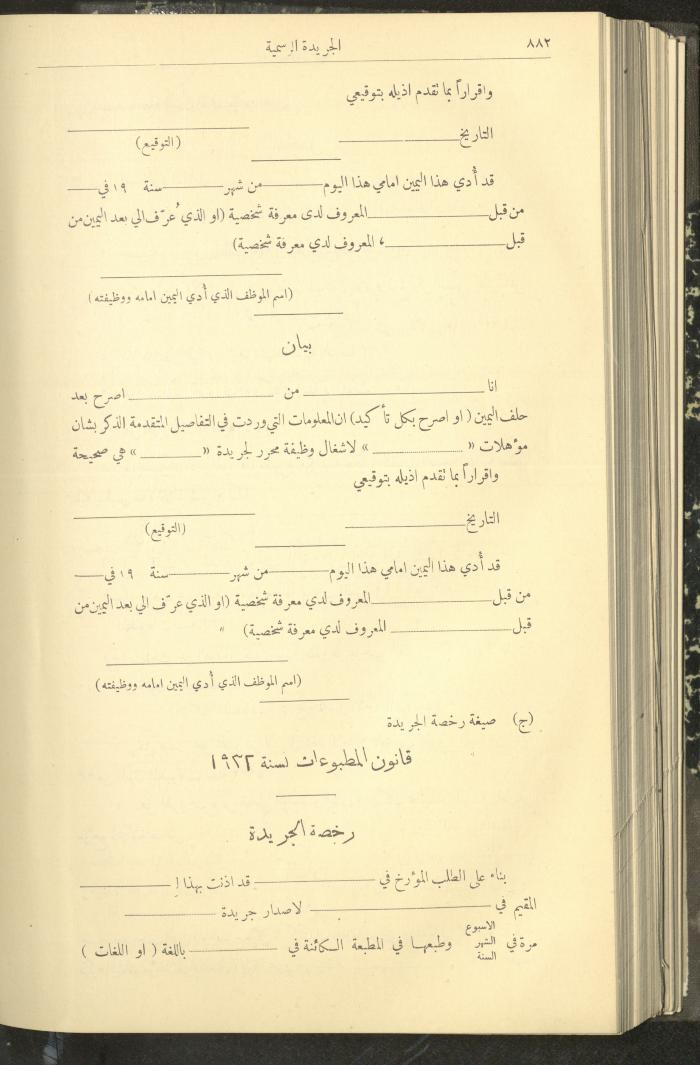 الجريدة الرسمية ٨٨٢
واقراراً بما تقدم اذيله بتوقيعي
التاريخ
(التوقيع)
قد أُدي هذا اليمين امامي هذا اليوم من شهر سنة ١٩ في
من قبل المعروف لدى معرفة شخصية (او الذي عُرّف الي بعد اليمين من
قبل ، المعروف لدي معرفة شخصية)
(اسم الموظف الذي أُدي اليمين امامه ووظيفته)
بيان
انا من اصرح بعد
حلف اليمين (او اصرح بكل تأكيد) ان المعلومات التي وردت في التفاصيل المتقدمة الذكر بشان
مؤهلات « » لاشغال وظيفة محرر لجريدة « » هي صحيحة
واقراراً بما تقدم اذيله بتوقيعي
التاريخ
(التوقيع)
قد أُدي هذا اليمين امامي هذا اليوم من شهر سنة ١٩ في
من قبل المعروف لدي معرفة شخصية (او الذي عرّف الي بعد اليمين من
قبل المعروف لدي معرفة شخصية)
(اسم الموظف الذي أُدي اليمين امامه ووظيفته)
(ج) صيغة رخصة الجريدة
قانون المطبوعات لسنة ١٩٣٢
رخصة الجريدة
بناء على الطلب المؤرخ في قد اذنت بهذا
المقيم في لاصدار جريدة
الاسبوع
مرة في الشهر وطبعها في المطبعة الكائنة في باللغة ( او اللغات )
السنة